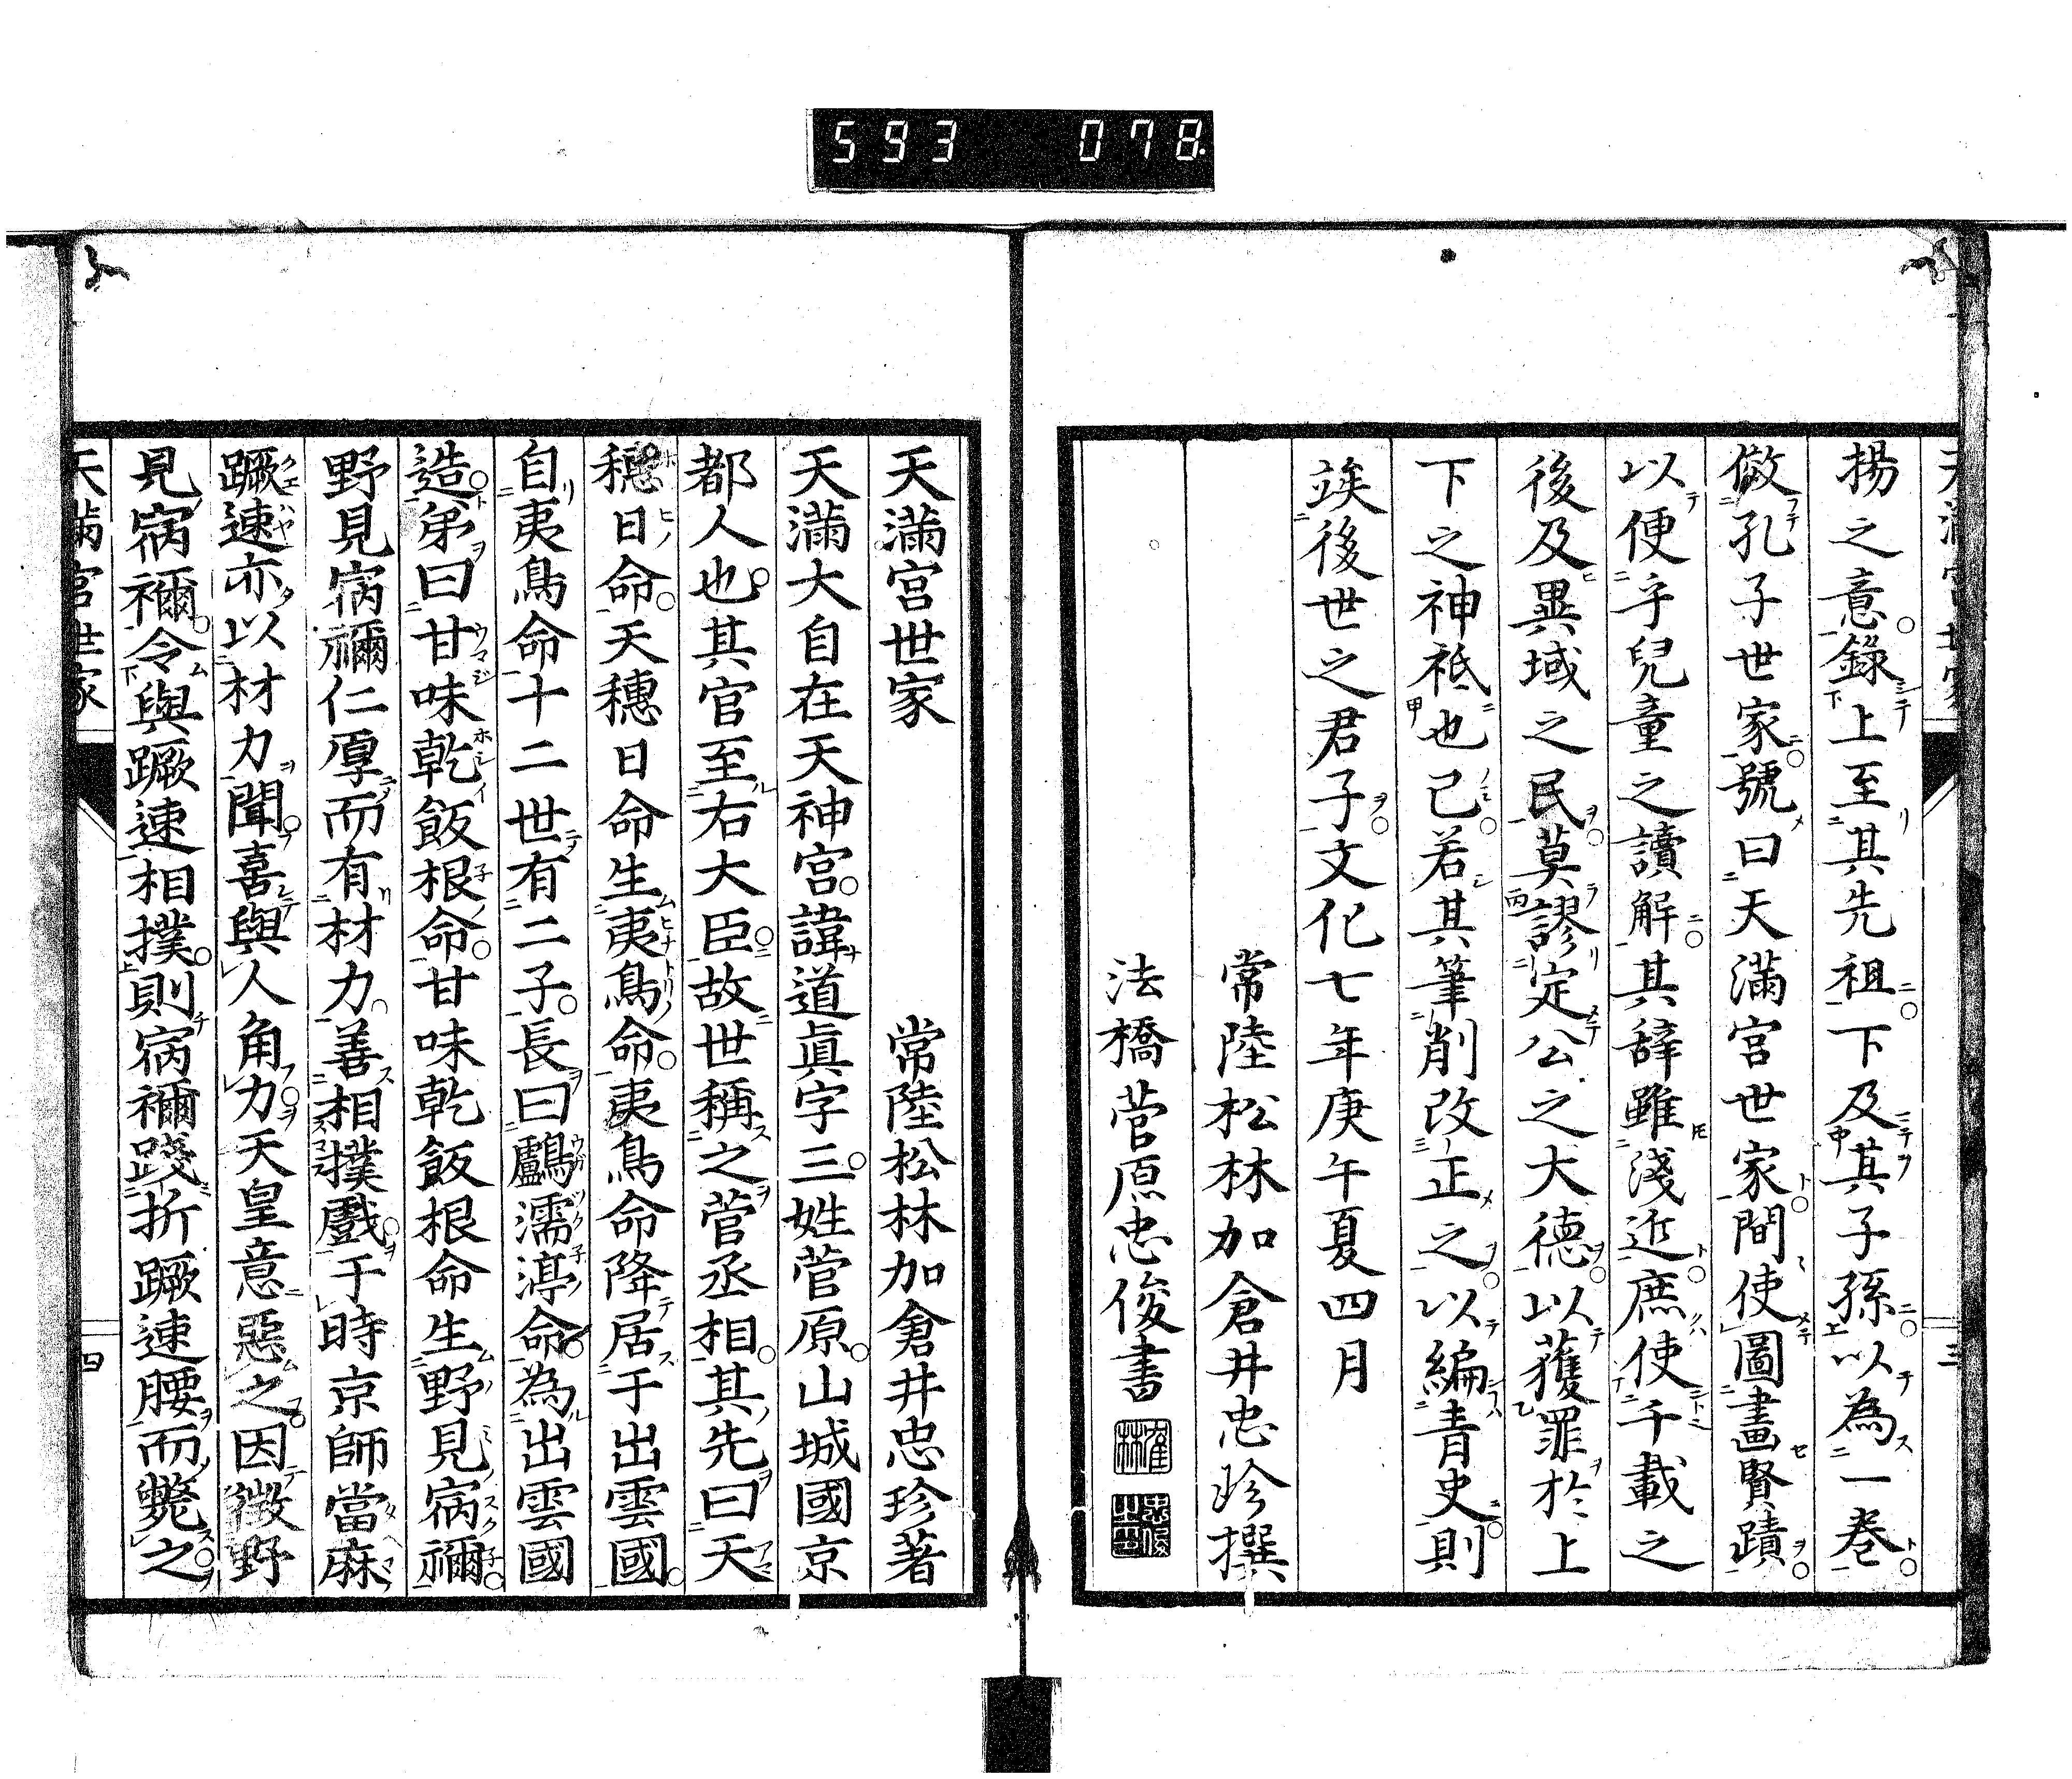 593 078
揚之意錄上至其先祖下及其子孫以為一卷
倣孔子世家號曰天滿宮世家間使圖畫賢蹟
以便乎兒童之讀解其辭雖淺近庶使千載之
後及異域之民莫謬定公之大德以獲罪於上
下之神祗也已若其筆削改正之以編青史則
竢後世之君子文化七年庚午夏四月
常陸松林加倉井忠珍撰
法橋菅原忠俊書
天滿宮世家 常陸松林加倉井忠珍著
天滿大自在天神宮諱道眞字三姓菅原山城國京
都人也其官至右大臣故世稱之菅丞相其先曰天
穗日命天穗日命生夷鳥命夷鳥命降居于出雲國
自夷鳥命十二世有二子長曰鸕濡渟命為出雲國
造弟曰甘味乾飯根命甘味乾飯根命生野見宿禰
野見宿禰仁厚而有材力善相撲戲于時京師當麻
蹶速亦以材力聞喜與人角力天皇意惡之因徵野
見宿禰令與蹶速相撲則宿禰踐折蹶速腰而斃之
天滿宮世家 四